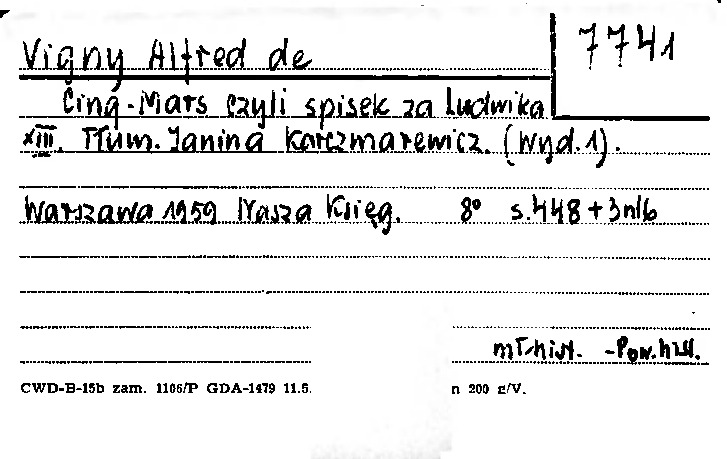 Vigny Alfred de
7741
Cinq-Mars czyli spisek za Ludwika
XIII. Tłum. Janina Karczmarewicz. (Wyd. 1).
Warszawa 1959 Nasza Księg. 8° s. 448 + 3 nlb
-Pow. hist.
CWD-B-15b zam. 1106/P GDA-1479 11.5.
n 200 z/V.